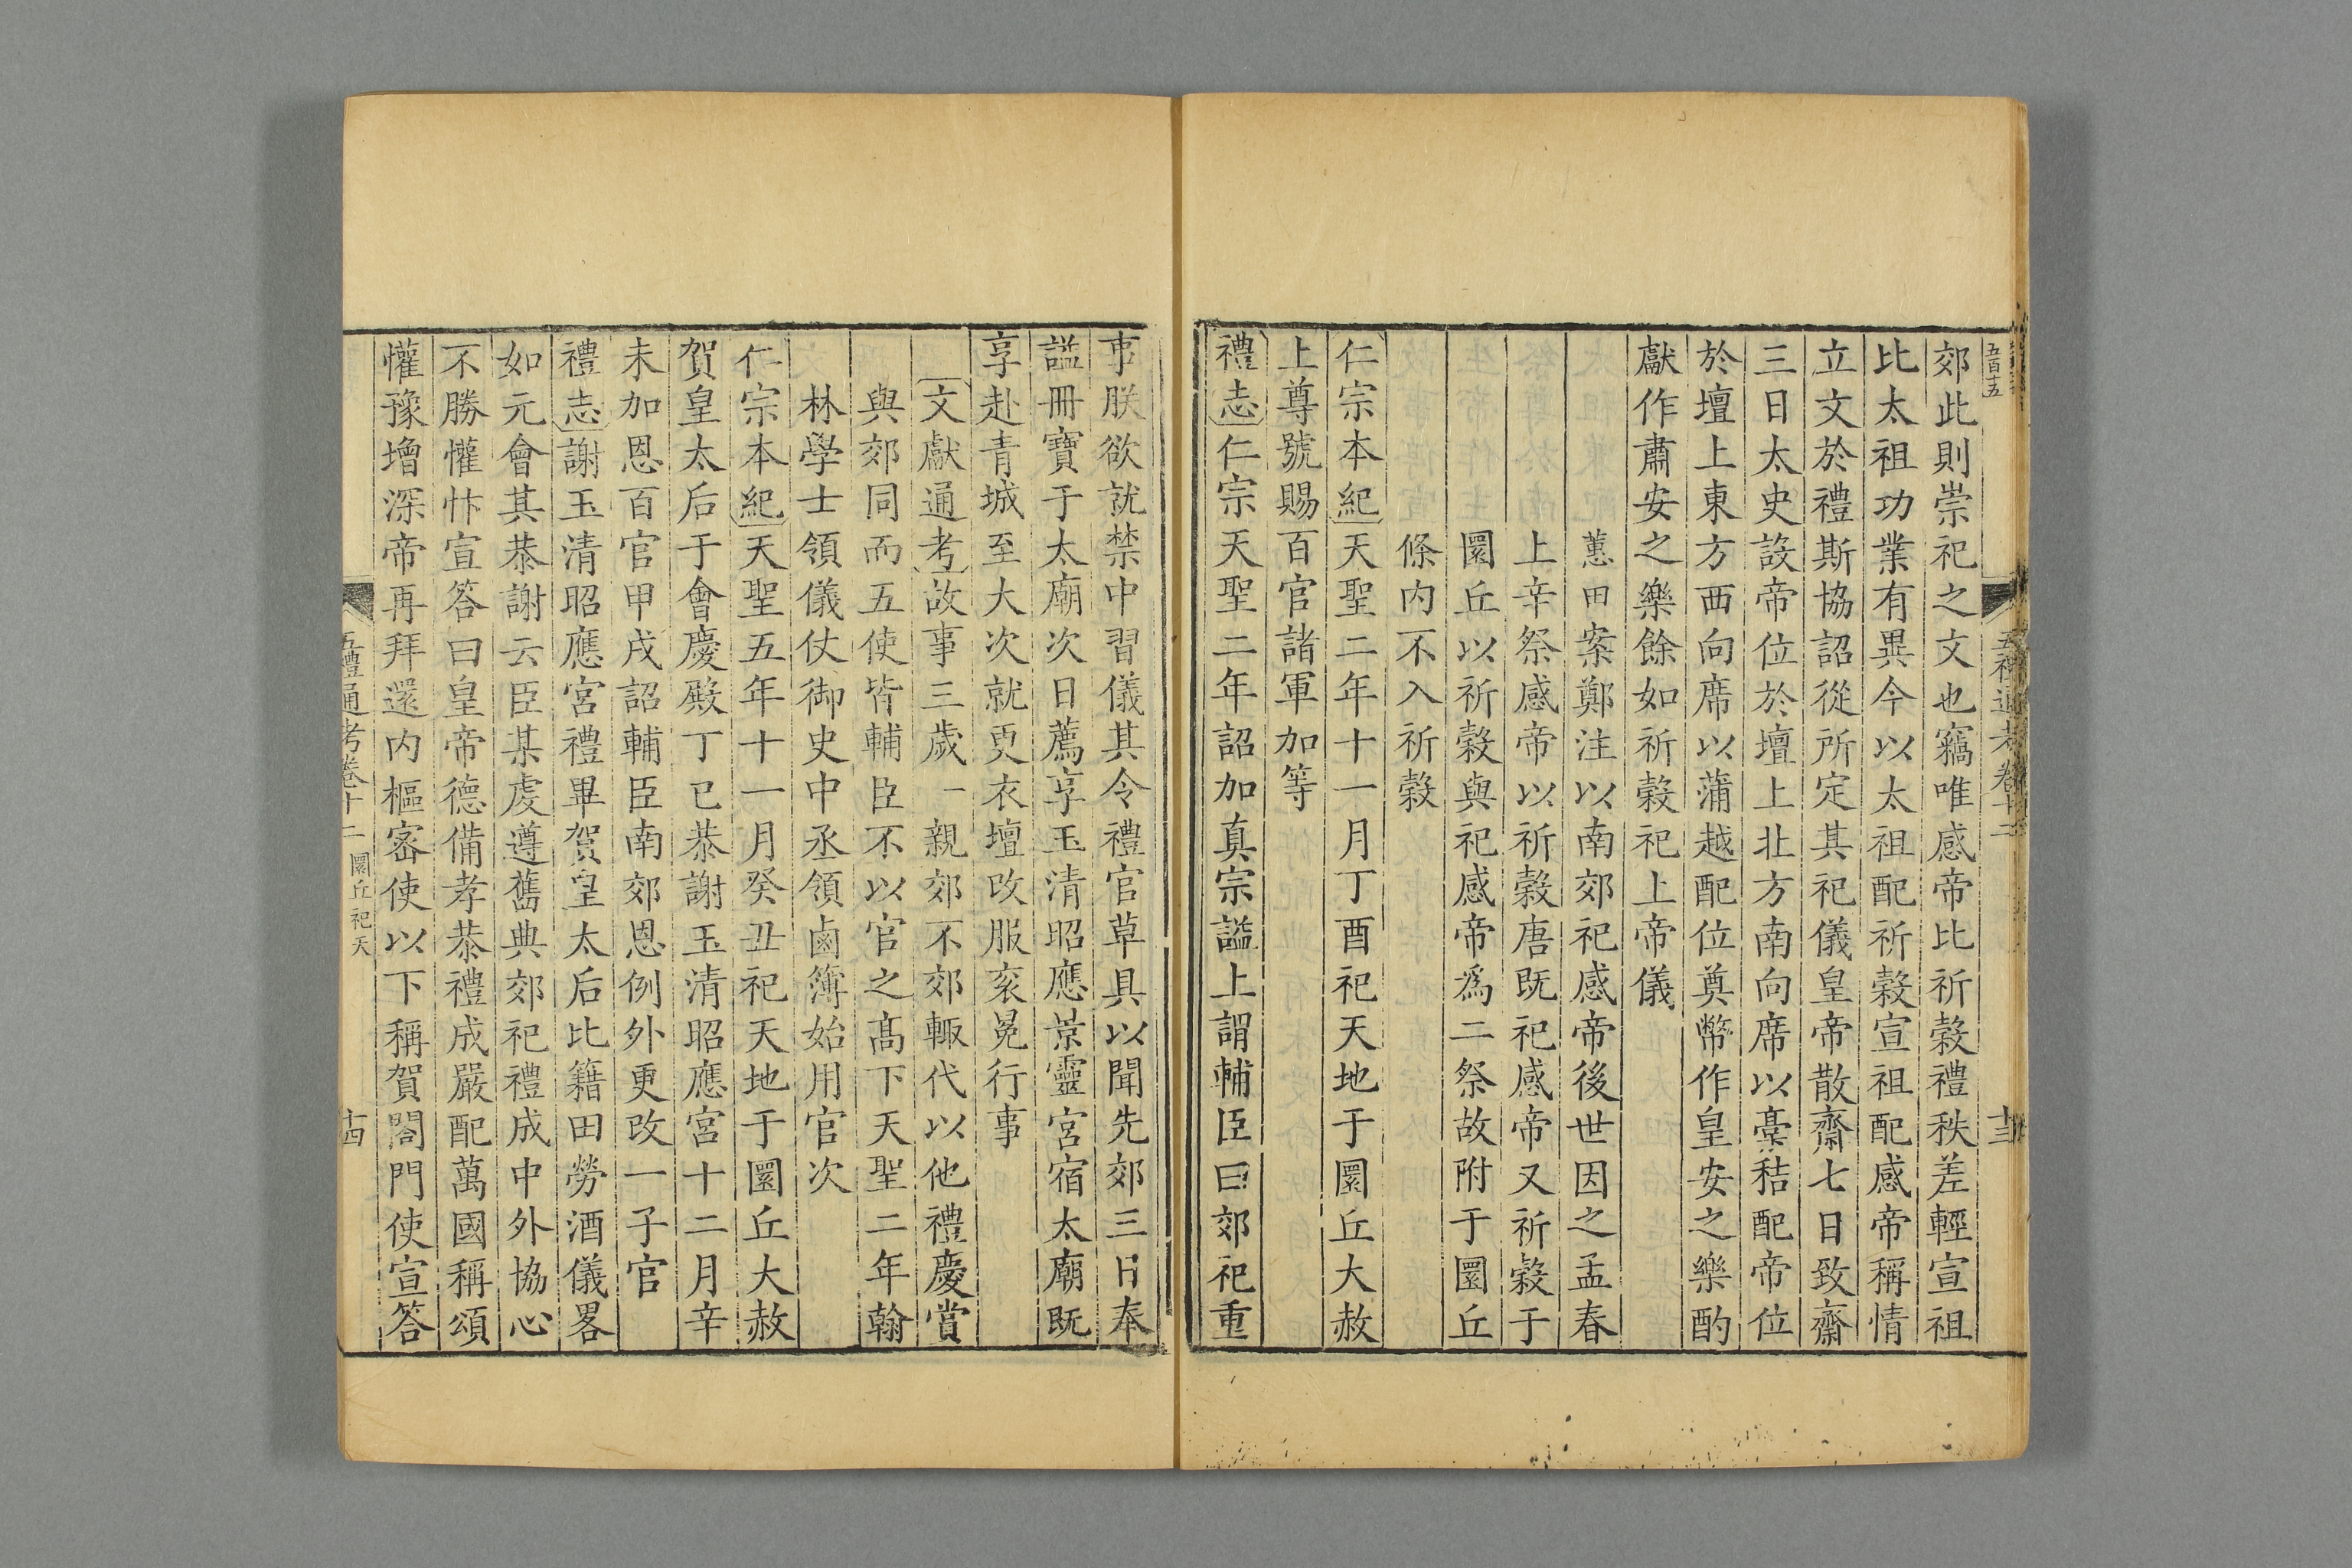 五百十五
五禮通考卷十二
十三
郊此則崇祀之文也竊唯感帝比祈穀禮秩差輕宣祖
比太祖功業有異今以太祖配祈穀宣祖配感帝稱情
立文於禮斯協詔從所定其祀儀皇帝散齋七日致齋
三日太史設帝位於壇上北方南向席以藁秸配帝位
於壇上東方西向席以蒲越配位奠幣作皇安之樂酌
獻作肅安之樂餘如祈穀祀上帝儀
蕙田案鄭注以南郊祀感帝後世因之孟春
上辛祭感帝以祈穀唐既祀感帝又祈穀于
圜丘以祈穀與祀感帝為二祭故附于圜丘
條內不入祈穀
仁宗本紀天聖二年十一月丁酉祀天地于圜丘大赦
上尊號賜百官諸軍加等
禮志仁宗天聖二年詔加真宗謚上謂輔臣曰郊祀重
事朕欲就禁中習儀其令禮官草具以聞先郊三日奉
謚冊寶于太廟次日薦享玉清昭應景靈宮宿太廟既
享赴青城至大次就更衣壇改服袞冕行事
文獻通考故事三歲一親郊不郊輒代以他禮慶賞
與郊同而五使皆輔臣不以官之高下天聖二年翰
林學士領儀仗御史中丞領鹵簿始用官次
仁宗本紀天聖五年十一月癸丑祀天地于圜丘大赦
賀皇太后于會慶殿丁巳恭謝玉清昭應宮十二月辛
未加恩百官甲戌詔輔臣南郊恩例外更改一子官
禮志謝玉清昭應宮禮畢賀皇太后比籍田勞酒儀畧
如元會其恭謝云臣某虔遵舊典郊祀禮成中外協心
不勝懽忭宣答曰皇帝德備孝恭禮成嚴配萬國稱頌
懽豫增深帝再拜還內樞密使以下稱賀閤門使宣答
五禮通考卷十二 圜丘祀天
十四